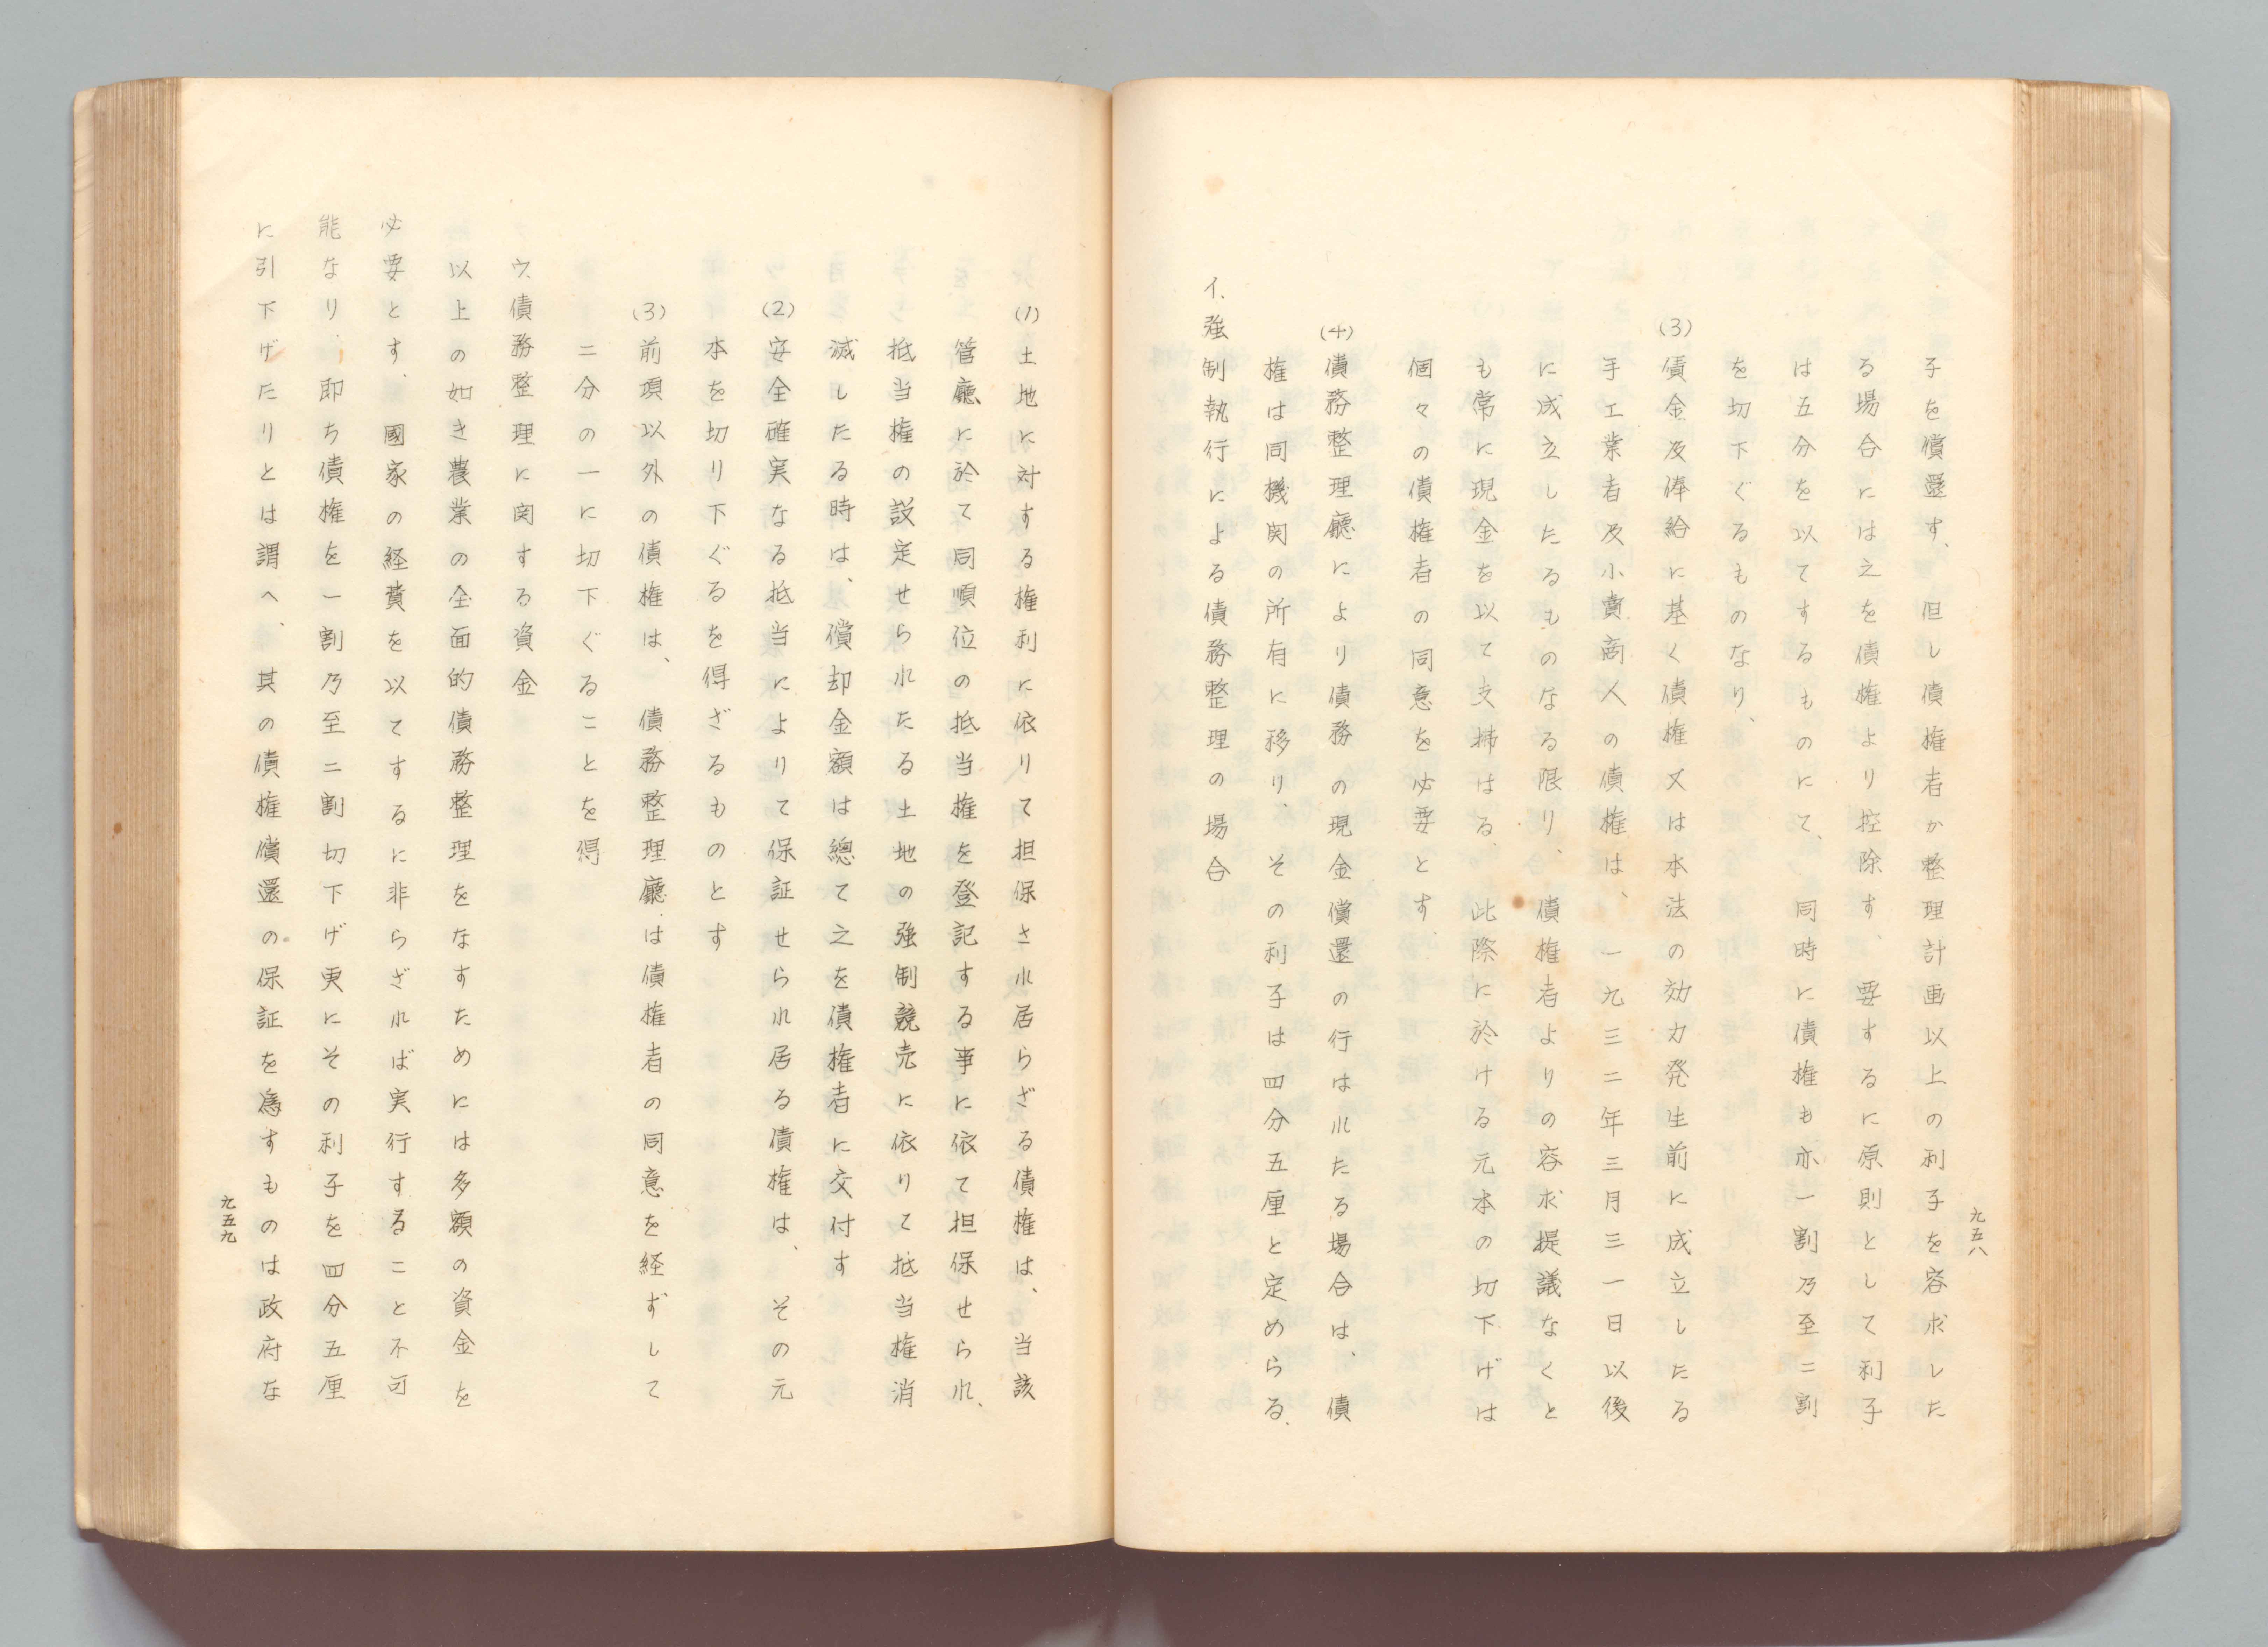 九五八
子を償還す、但し債権者か整理計画以上の利子を容求した
る場合には之を債権より控除す、要するに原則として利子
は五分を以てするものにて、同時に債権も亦一割乃至二割
を切下ぐるものなり、
(3)債金及俸給に基く債権又は本法の効力発生前に成立したる
手工業者及小賣商人の債権は、一九三二年三月三一日以後
に成立したるものなる限り、債権者よりの容求提議なくと
も常に現金を以て支拂はる、此際に於ける元本の切下げは
個々の債権者の同意を必要とす、
(4)債務整理廳により債務の現金償還の行はれたる場合は、債
権は同機関の所有に移り、その利子は四分五厘と定めらる、
イ、強制執行による債務整理の場合
(1)土地に対する権利に依りて担保され居らざる債権は、当該
管廳に於て同順位の抵当権を登記する事に依て担保せられ、
抵当権の設定せられたる土地の強制競売に依りて抵当権消
滅したる時は、償却金額は總て之を債権者に交付す
(2)安全確実なる抵当によりて保証せられ居る債権は、その元
本を切り下ぐるを得ざるものとす
(3)前項以外の債権は、債務整理廳は債権者の同意を経ずして
二分の一に切下ぐることを得
ウ、債務整理に関する資金
以上の如き農業の全面的債務整理をなすためには多額の資金を
必要とす、國家の経費を以てするに非らざれば実行すること不可
能なり、即ち債権を一割乃至二割切下げ更にその利子を四分五厘
に引下げたりとは謂へ、其の債権償還の保証を為すものは政府な
九五九